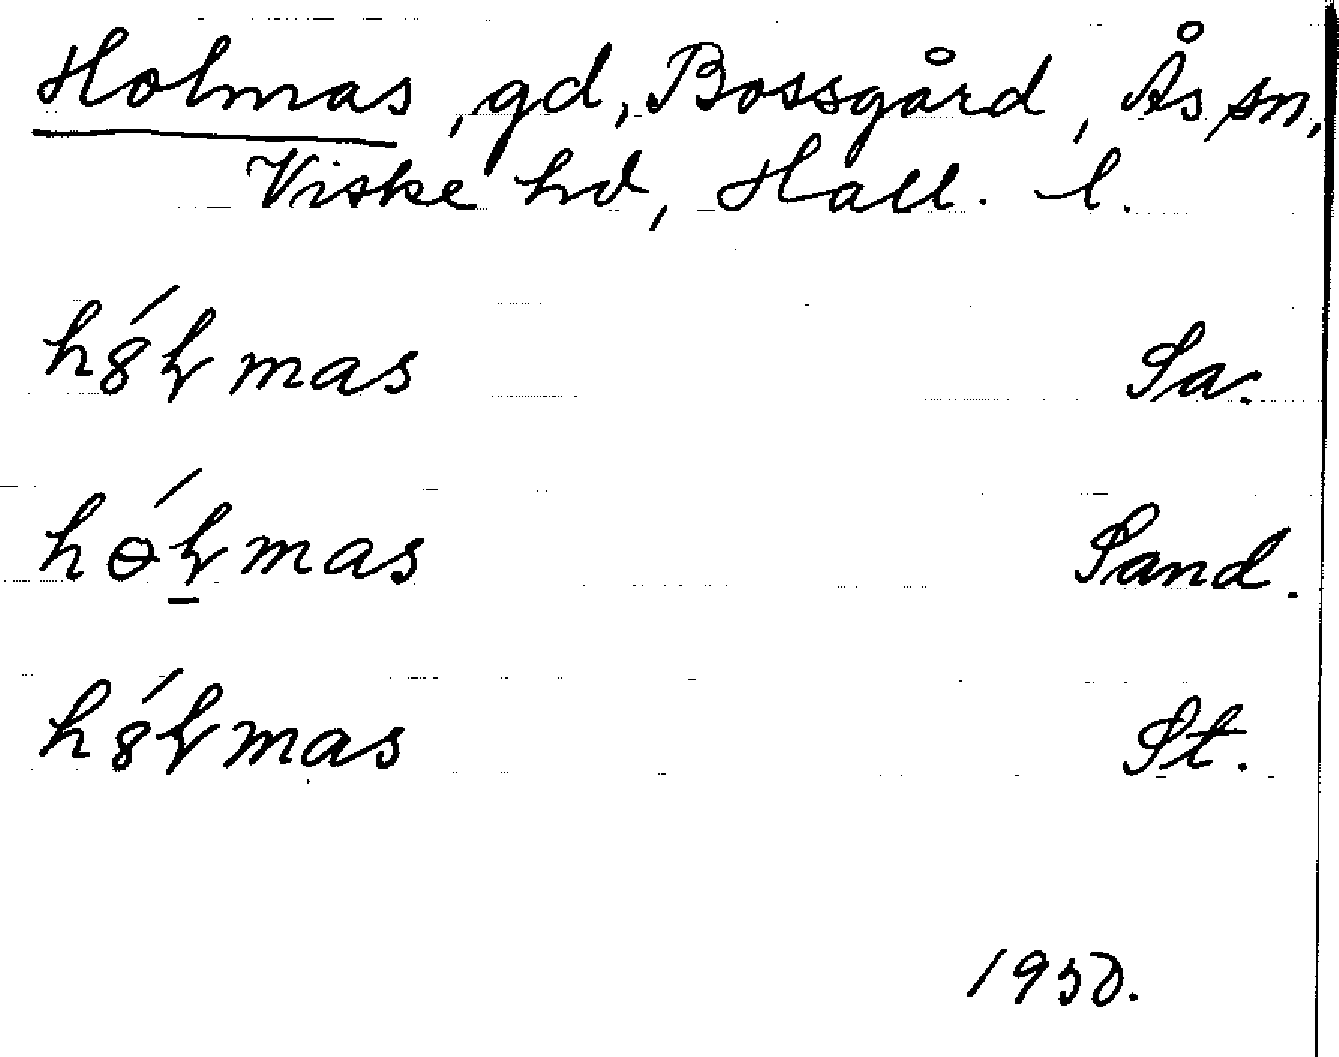 Holmas, gd, Bossgård, Ås sn,
Viske hd, Hall. l.
hȣ́ɽmas Sa.
hɵ́ɽ̠mas Sand.
hȣ́ɽmas St.
1950.